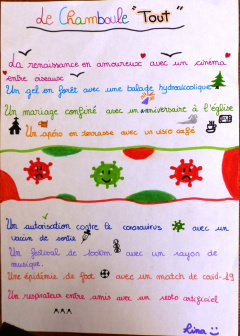 Le Chamboule "Tout"
La renaissance en amoureux avec un cinéma
entre oiseaux
Un gel en forêt avec une balade hydroalcoolique
Un mariage confiné avec un anniversaire à l'église
Un apéro en terrasse avec un visio café
Un autorisation contre le coronavirus avec un
vaccin de sortie
Un festival de zoom avec un rayon de
musique
Une épidémie de foot avec un match de covid-19
Un respirateur entre amis avec un resto artificiel
Lina